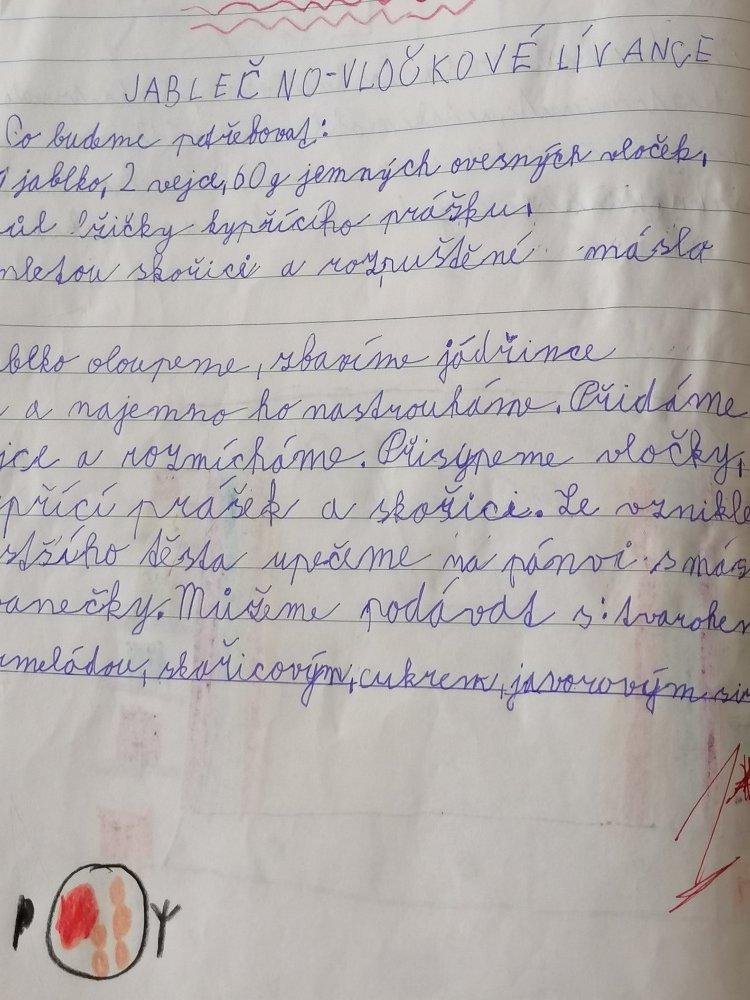 JABLEČNO-VLOČKOVÉ LÍVANCE
Co budeme potřebovat:
1 jablko, 2 vejce, 60g jemných ovesných vloček,
ůl lžičky kypřícího prášku,
mletou skořici a rozpuštěné máslo
blko oloupeme, zbavíme jádřince
a najemno ho nastrouháme. Přidáme
jce a rozmícháme. Přisypeme vločky,
přící prášek a skořici. Ze vznikle
stšího těsta upečeme na pánvi s más
vanečky. Můžeme podávat s: tvarohem
rmeládou, skořicovým, cukrem, javorovým sir
1*